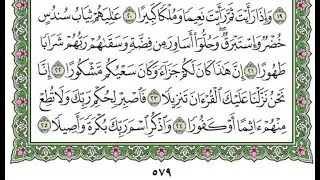 ١٩ وَإِذَا رَأَيْتَ ثَمَّ رَأَيْتَ نَعِيمًا وَمُلْكًا كَبِيرًا ٢٠ عَالِيَهُمْ ثِيَابُ سُندُسٍ
خُضْرٌ وَإِسْتَبْرَقٌ وَحُلُّوٓا۟ أَسَاوِرَ مِن فِضَّةٍ وَسَقَىٰهُمْ رَبُّهُمْ شَرَابًا
طَهُورًا ٢١ إِنَّ هَٰذَا كَانَ لَكُمْ جَزَآءً وَكَانَ سَعْيُكُم مَّشْكُورًا ٢٢ إِنَّا
نَحْنُ نَزَّلْنَا عَلَيْكَ ٱلْقُرْءَانَ تَنزِيلًا ٢٣ فَٱصْبِرْ لِحُكْمِ رَبِّكَ وَلَا تُطِعْ
مِنْهُمْ ءَاثِمًا أَوْ كَفُورًا ٢٤ وَٱذْكُرِ ٱسْمَ رَبِّكَ بُكْرَةً وَأَصِيلًا ٢٥
٥٧٩